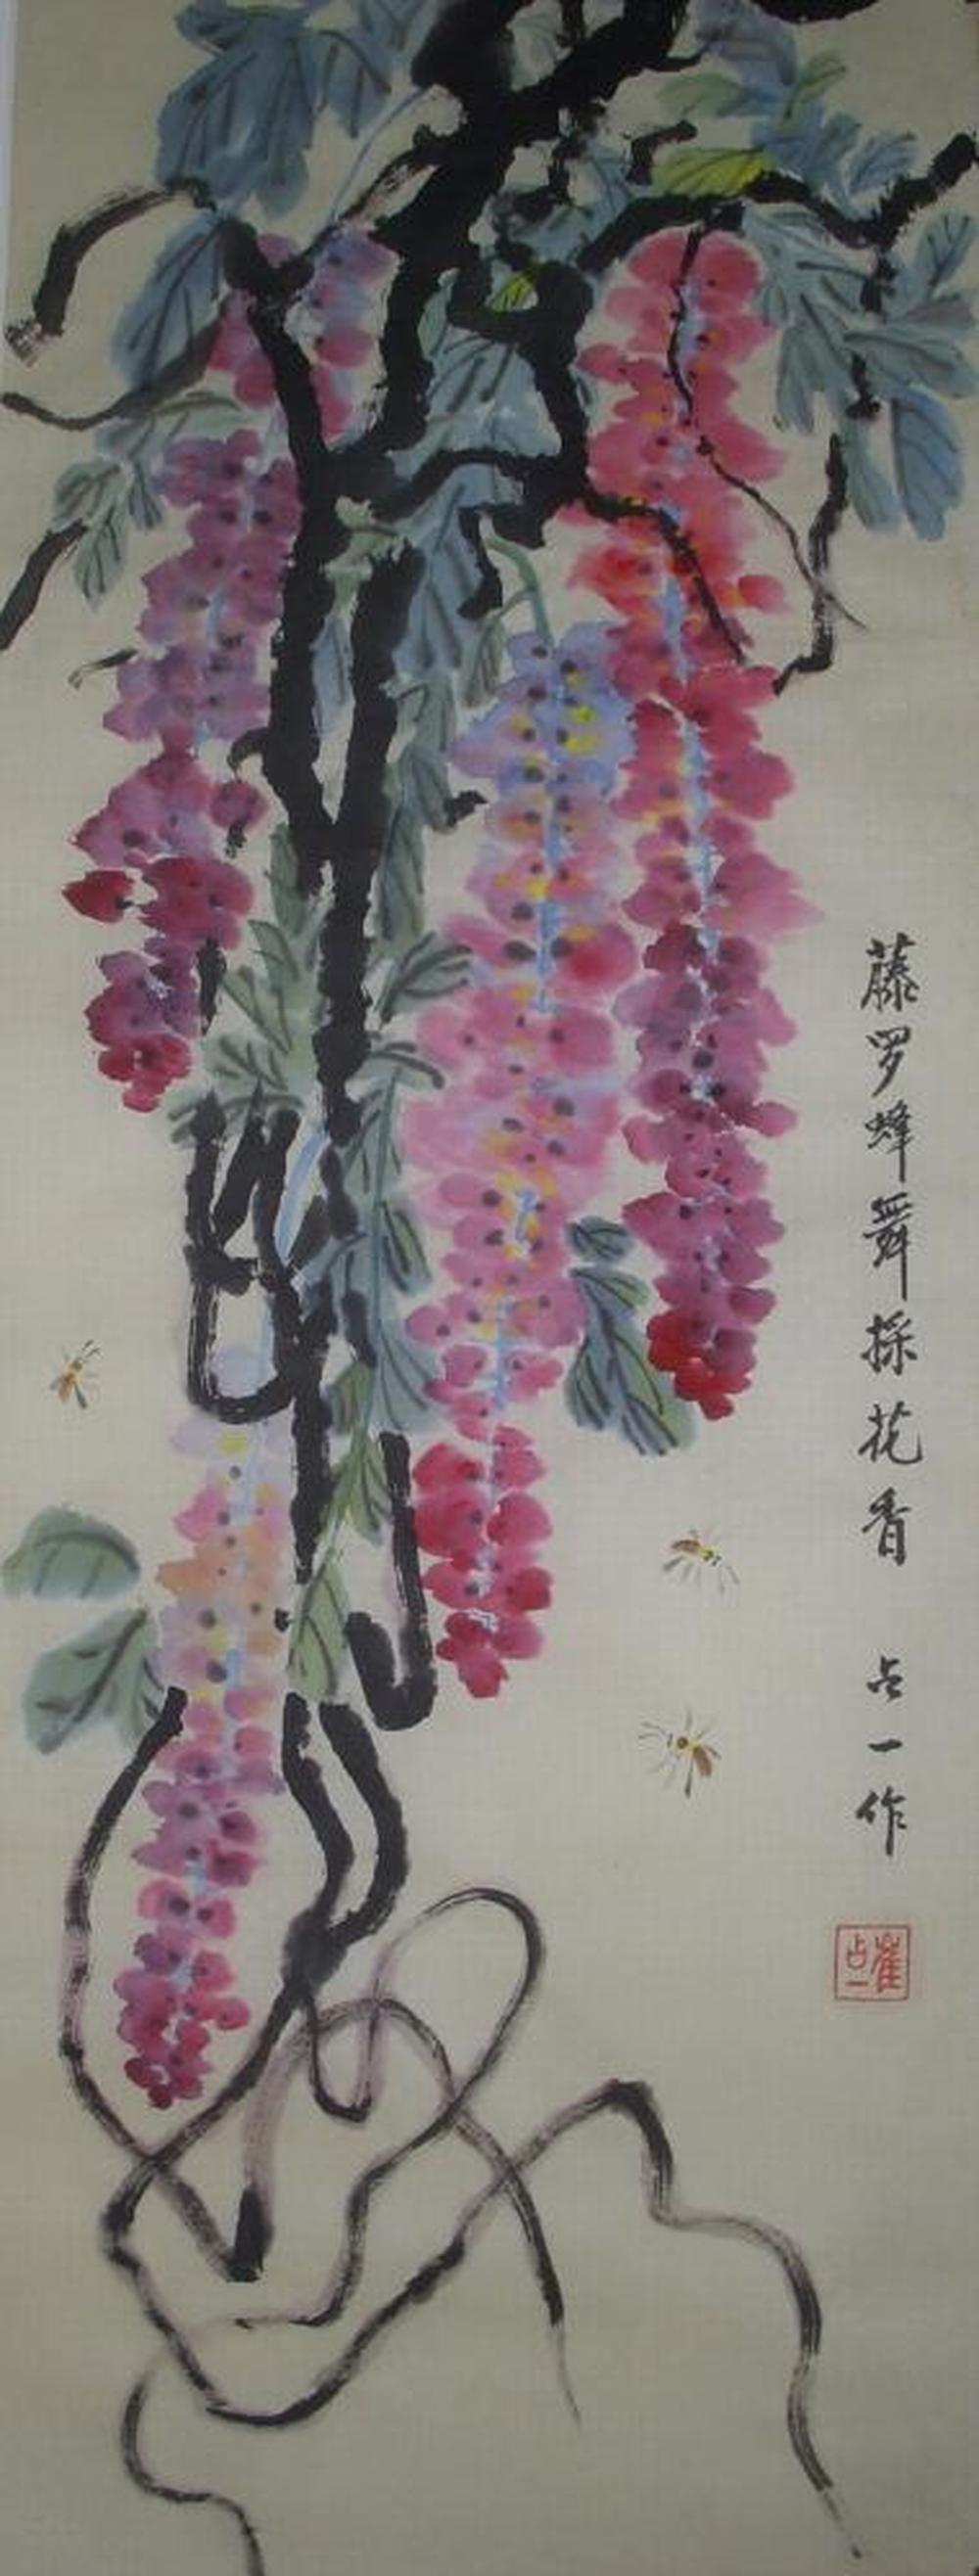 藤罗蜂舞採花香
占一作
崔占一